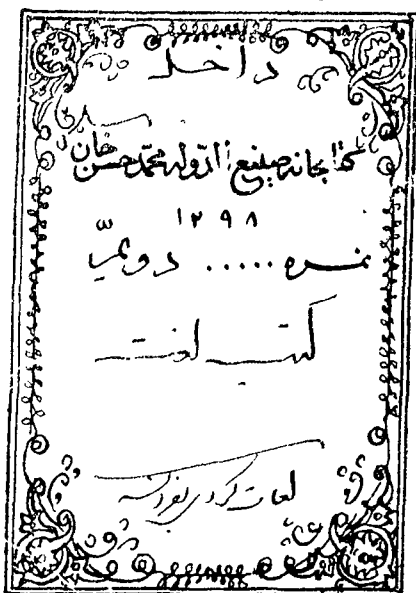 داخل
کتابخانه صنیع الدوله محمد حسن خان
۱۲۹۸
نمره ..... دویم
کتب لغت
لغات کردی بفرانسه